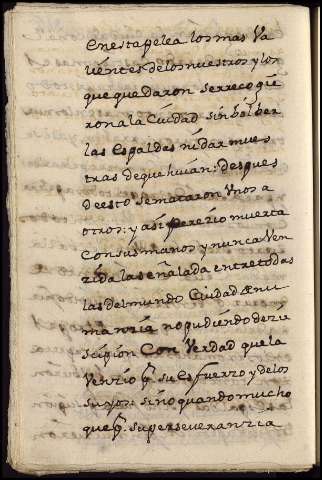 enesta pelea los mas Va
lientes de los nuestros y los
que quedaron se rrecogie
ron a la Ciudad sin bolber
las Espaldas ni dar mues
tras de que huian: despues
de esto se mataron Unos a
otros: y asi perezio muerta
con sus manos y nunca Ven
zida la señalada entre todas
las del mundo Ciudad de nu
manzia no pudiendo dezir
scipion Con Verdad que la
Venzio q su Esfuerzo y de los
suyos: sino quando mucho
que q su perseveranzia